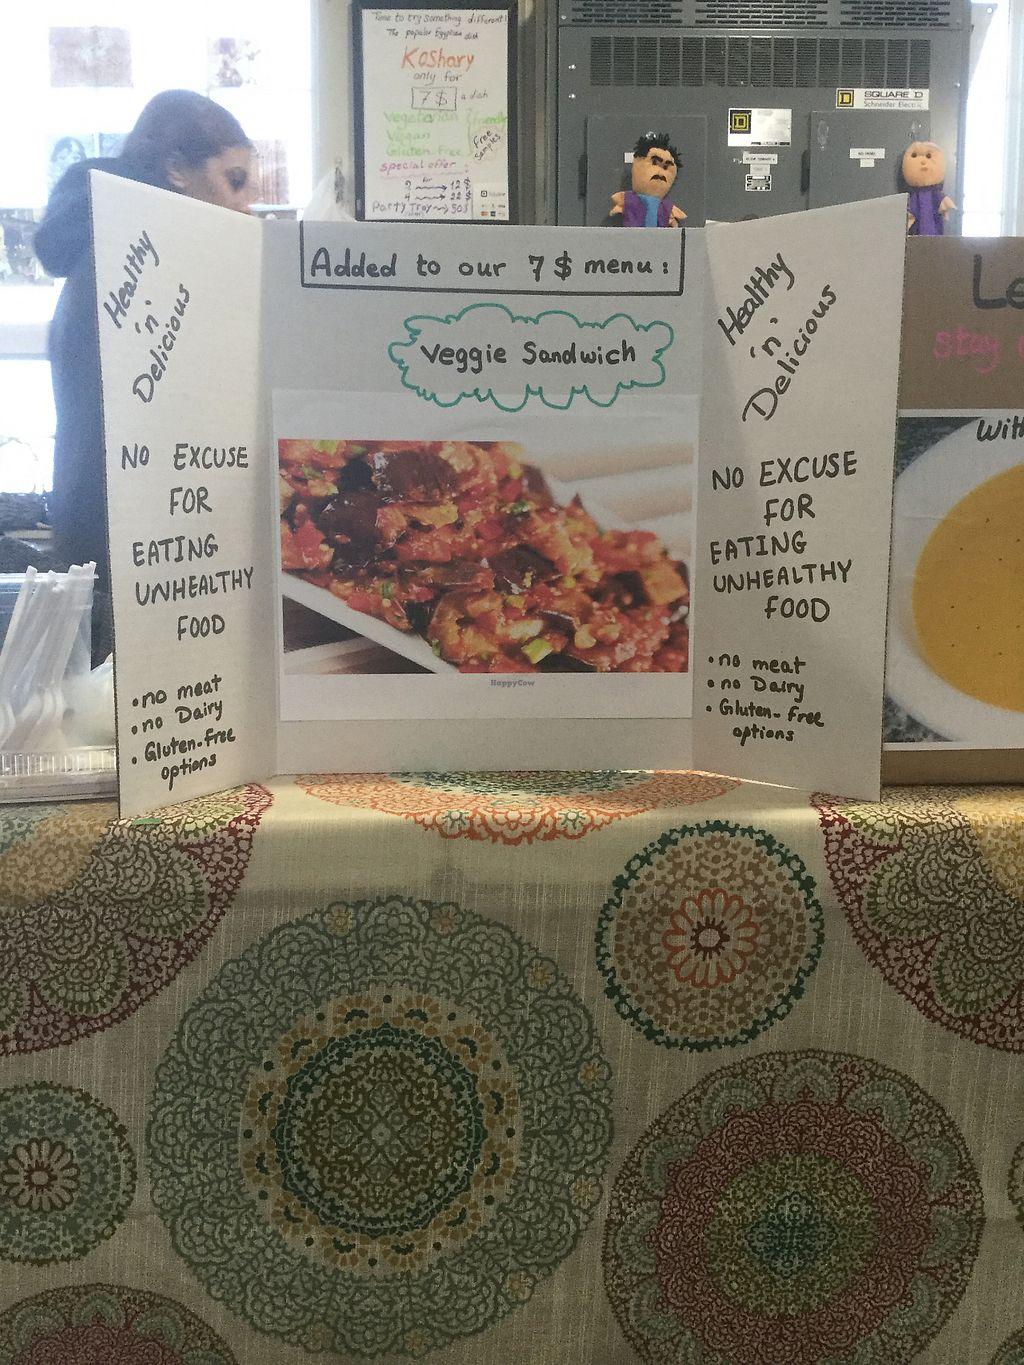 Time to try something different!
The popular Egyptian dish
Koshary
only for
7 $ a dish
Vegetarian
Vegan
Gluten-Free
friendly
Free
Samples
special offer:
for
2 → 12 $
4 → 22 $
Party Tray → 50 $
Square
SQUARE D
Schneider Electric
Added to our 7 $ menu:
Veggie Sandwich
HappyCow
Healthy
'n'
Delicious
NO EXCUSE
FOR
EATING
UNHEALTHY
FOOD
• no meat
• no Dairy
• Gluten-free
options
Healthy
'n'
Delicious
NO EXCUSE
FOR
EATING
UNHEALTHY
FOOD
• no meat
• no Dairy
• Gluten-free
options
Le
stay
With